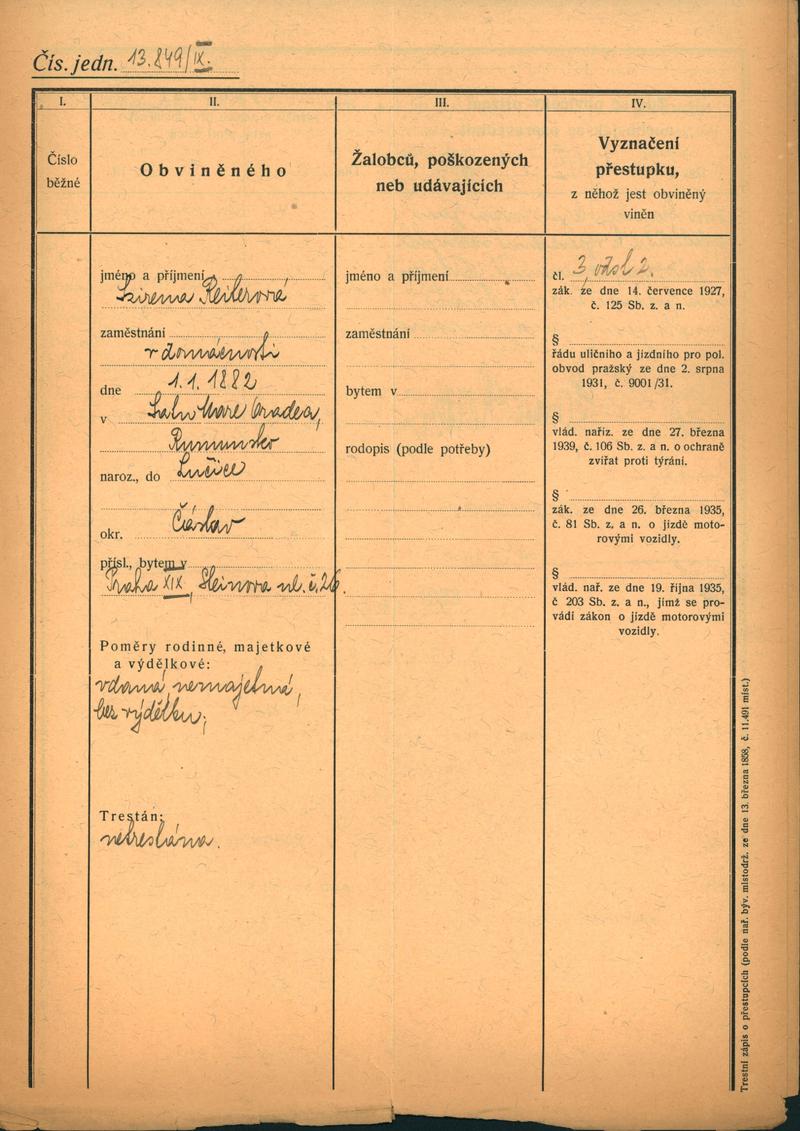 Čís. jedn. 13.849/IX.
I.
Číslo
běžné
II.
Obviněného
III.
Žalobců, poškozených
neb udávajících
IV.
Vyznačení
přestupku,
z něhož jest obviněný
viněn
jméno a příjmení
Reiterová
zaměstnání
v domácnosti
dne 1.1. 1882
v Satu Mare Oradea,
Rumunsko
naroz., do Lučice
okr. Čáslav
přísl., bytem v
Praha XIX, Sleinova ul. č. 26.
Poměry rodinné, majetkové
a výdělkové:
vdaná, nemajetná,
bez výdělku;
Trestán:
netrestána.
jméno a příjmení
zaměstnání
bytem v
rodopis (podle potřeby)
čl. 3, odst 2.
zák. ze dne 14. července 1927,
č. 125 Sb. z. a n.
§
řádu uličního a jízdního pro pol.
obvod pražský ze dne 2. srpna
1931, č. 9001/31.
§
vlád. naříz. ze dne 27. března
1939, č. 106 Sb. z. a n. o ochraně
zvířat proti týrání.
§
zák. ze dne 26. března 1935,
č. 81 Sb. z. a n. o jízdě moto-
rovými vozidly.
§
vlád. nař. ze dne 19. října 1935,
č 203 Sb. z. a n., jímž se pro-
vádí zákon o jízdě motorovými
vozidly.
Trestní zápis o přestupcích (podle nař. býv. místodrž. ze dne 13. března 1858, č. 11.491 míst.)